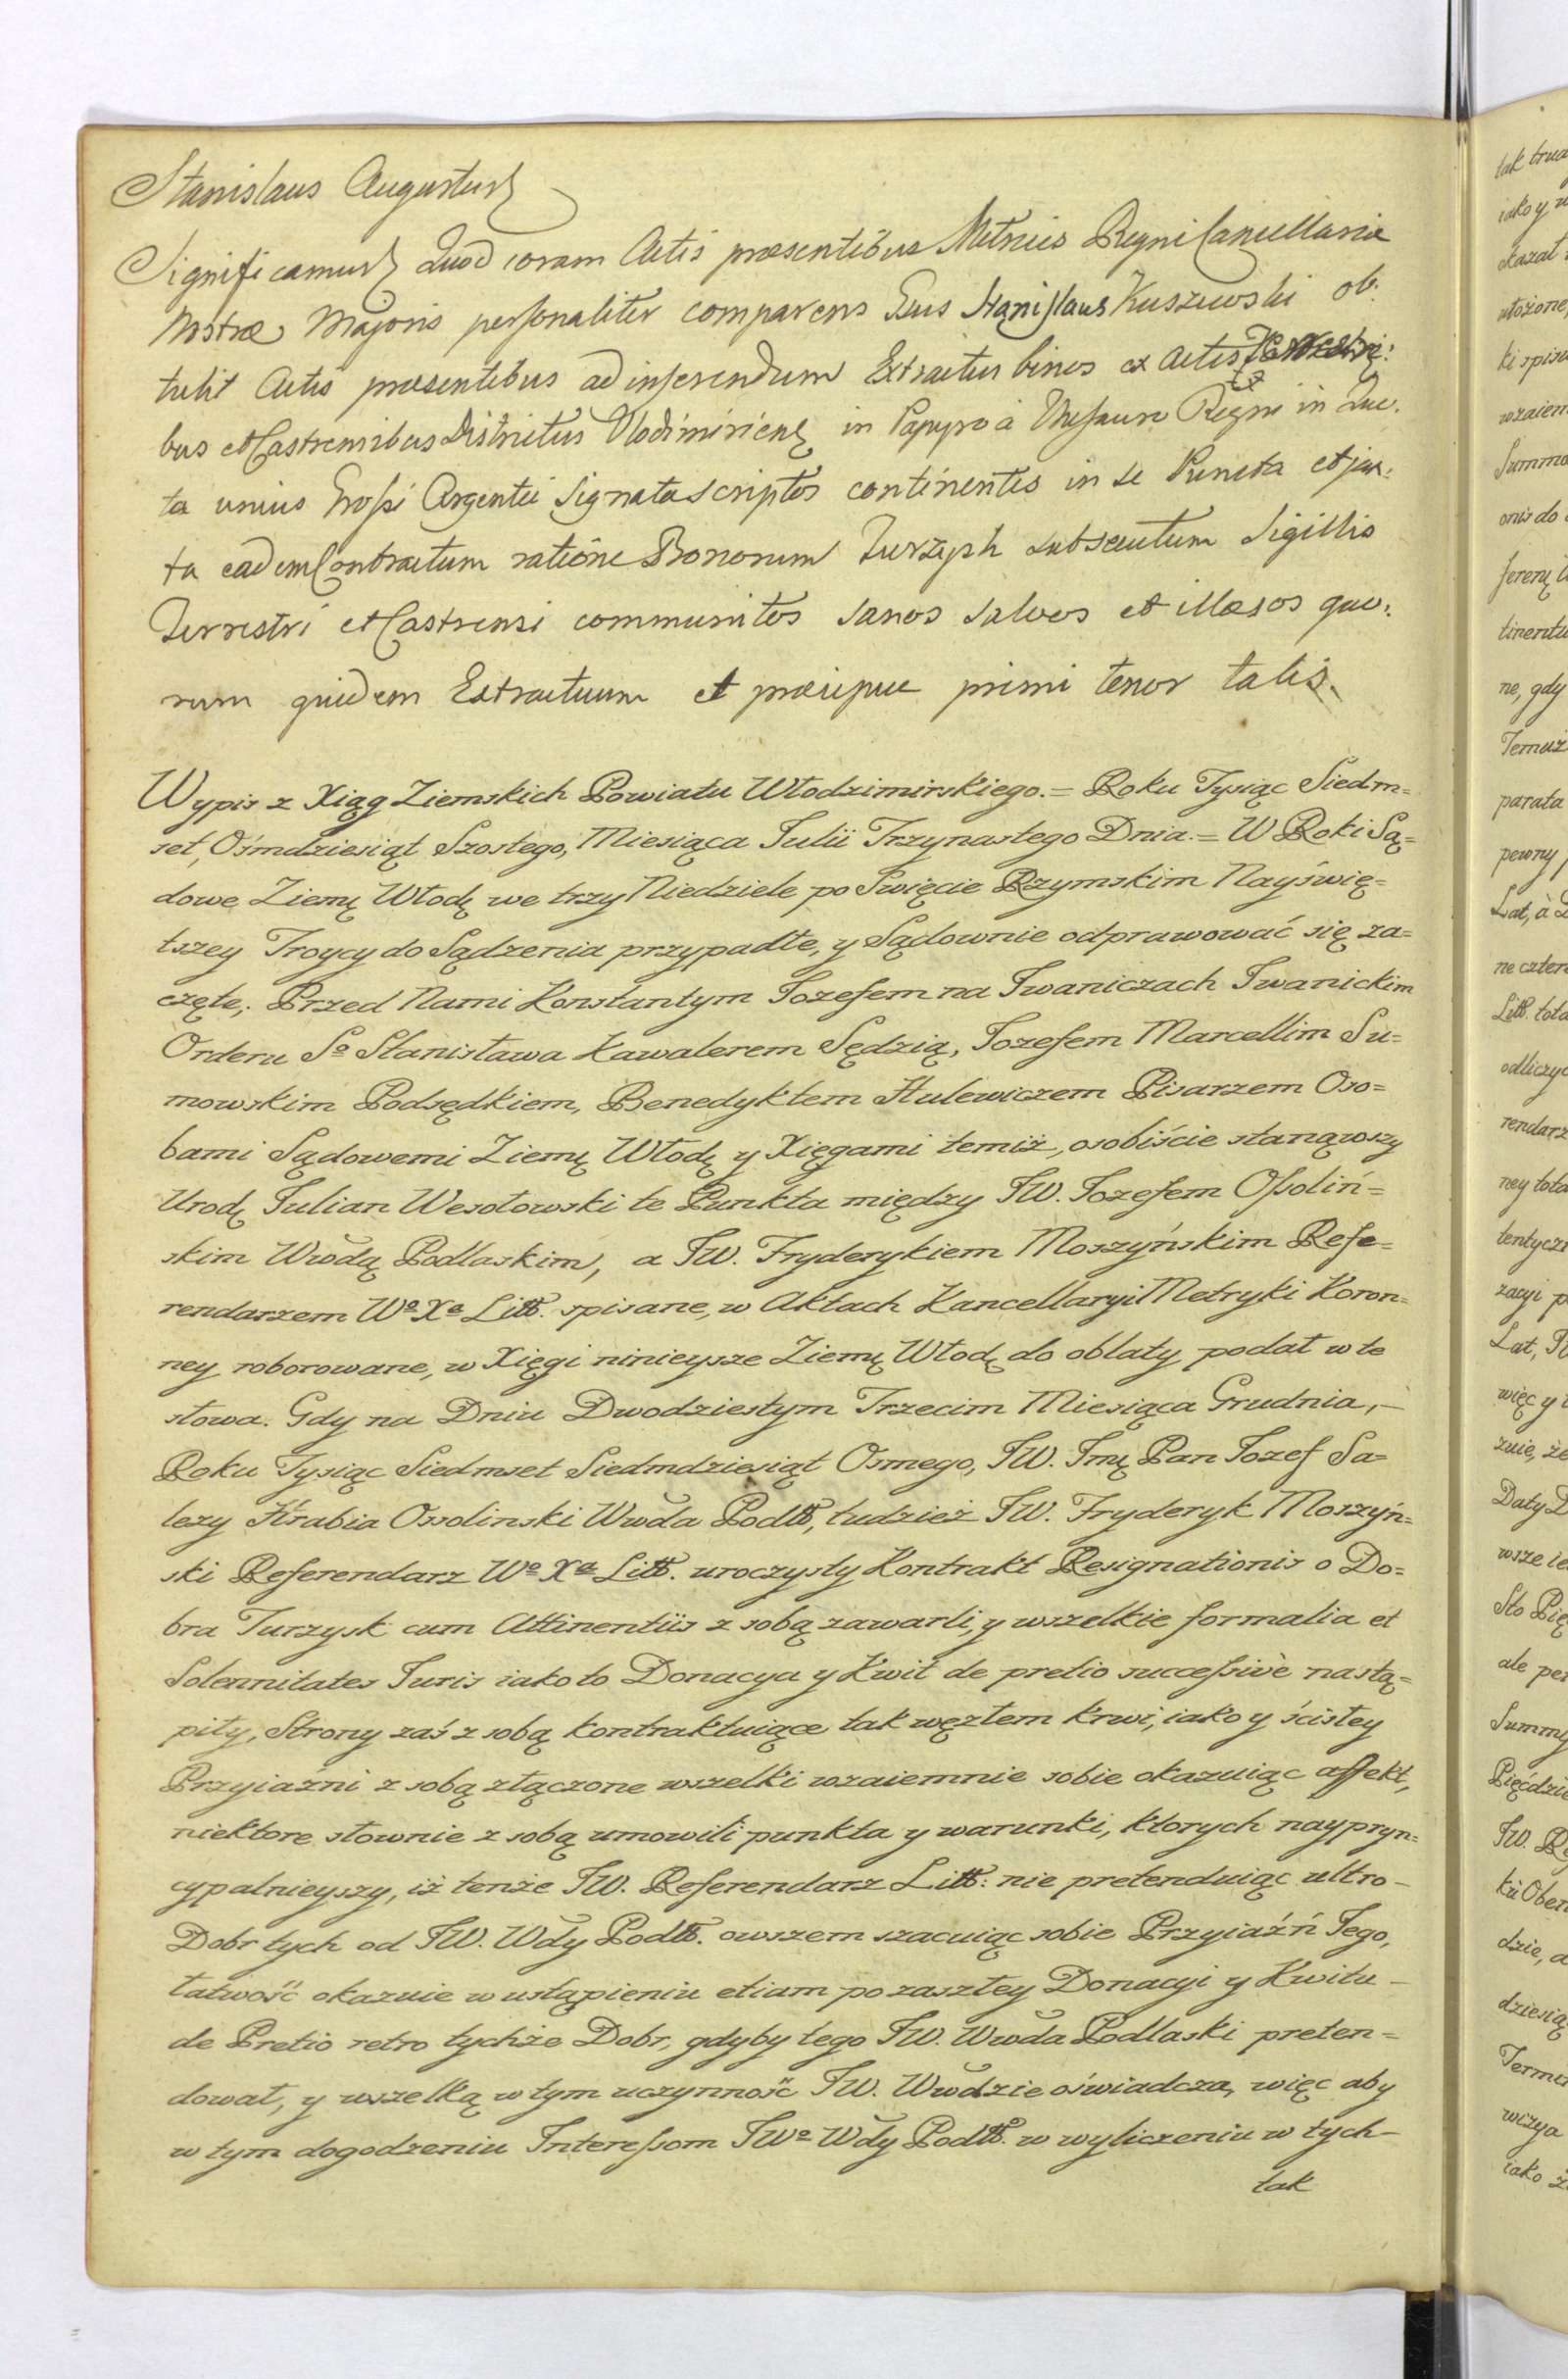 Stanislaus Augustus
Significamus Quod coram Actis præsentibus Metrices Regni Cancellariæ
Nostræ Majoris personaliter comparens Gnus Stanislaus Kuszewski ob:
tulit Actis præsentibus ad inserendum Extractus binos ex Actis Terrestri:
bus et Castrensibus Districtus Vlodimiriens in Papyro à Thesauro Regni in Quo:
ta unius Grossi Argentei Signata scriptos continentes in se Puncta et jux:
ta eadem Contractum ratione Bonorum Turzysk subsecutum Sigillis
Terrestri et Castrensi communitos sanos salvos et illæsos quo:
rum quidem Extractuum et præcipue primi tenor talis.
Wypis z Xiąg Ziemskich Powiatu Włodzimirskiego.= Roku Tysiąc Siedm=
set, Ośmdziesiąt Szostego, Miesiąca Julii Trzynastego Dnia.= W Roki Są=
dowe Ziemę Włodę we trzy Niedziele po Swięcie Rzymskim Nayświę=
tszey Troycy do Sądzenia przypadłe, y Sądownie odprawować się za=
częte; Przed Nami Konstantym Jozefem na Iwaniczach Iwanickim
Orderu So Stanisława Kawalerem Sędzią, Jozefem Marcellim Su=
mowskim Podsędkiem, Benedyktem Hulewiczem Pisarzem Oso=
bami Sądowemi Ziemę Włodę y Xięgami temiż, osobiście stanąwszy
Urodę Julian Wesołowski te Punkta między JW. Jozefem Ossoliń=
skim Wwodą Podlaskim, a JW. Fryderykiem Moszyńskim Refe=
rendarzem Wo Xa Litt. spisane, w Aktach Kancellaryi Metryki Koron=
ney roborowane, w Xięgi ninieysze Ziemę Włodę do oblaty podał w te
słowa. Gdy na Dniu Dwodziestym Trzecim Miesiąca Grudnia,-
Roku Tysiąc Siedmset Siedmdziesiąt Osmego, JW. Jmę Pan Jozef Sa=
lezy Hrabia Ossolinski Wwoda Podlł, tudzież JW. Fryderyk Moszyń=
ski Referendarz Wo Xa Litt. uroczysty Kontrakt Resignationis o Do=
bra Turzysk cum Attinentiis z sobą zawarli, y wszelkie formalia et
Solennitates Juris iako to Donacya y Kwit de pretio successivè nastą=
piły, Strony zaś z sobą kontraktuiące tak węzłem krwi, iako y ścisłey
Przyiaźni z sobą złączone wszelki wzaiemnie sobie okazuiąc affekt,
niektore słownie z sobą umowili punkta y warunki, ktorych naypryn=
cypalnieyszy, iż tenże JW. Referendarz Litt: nie pretenduiąc ultro-
Dobr tych od JW. Wdy Podlł. owszem szacuiąc sobie Przyiaźń Jego,
łatwość okazuie w ustąpieniu etiam po zaszłey Donacyi y Kwitu-
de Pretio retro tychże Dobr, gdyby tego JW. Wwoda Podlaski preten=
dował, y wszelką w tym uczynność JW. Wwodzie oświadcza, więc aby
w tym dogodzeniu Interessom JWo Wdy Podlł. w wyliczeniu w tych-
tak